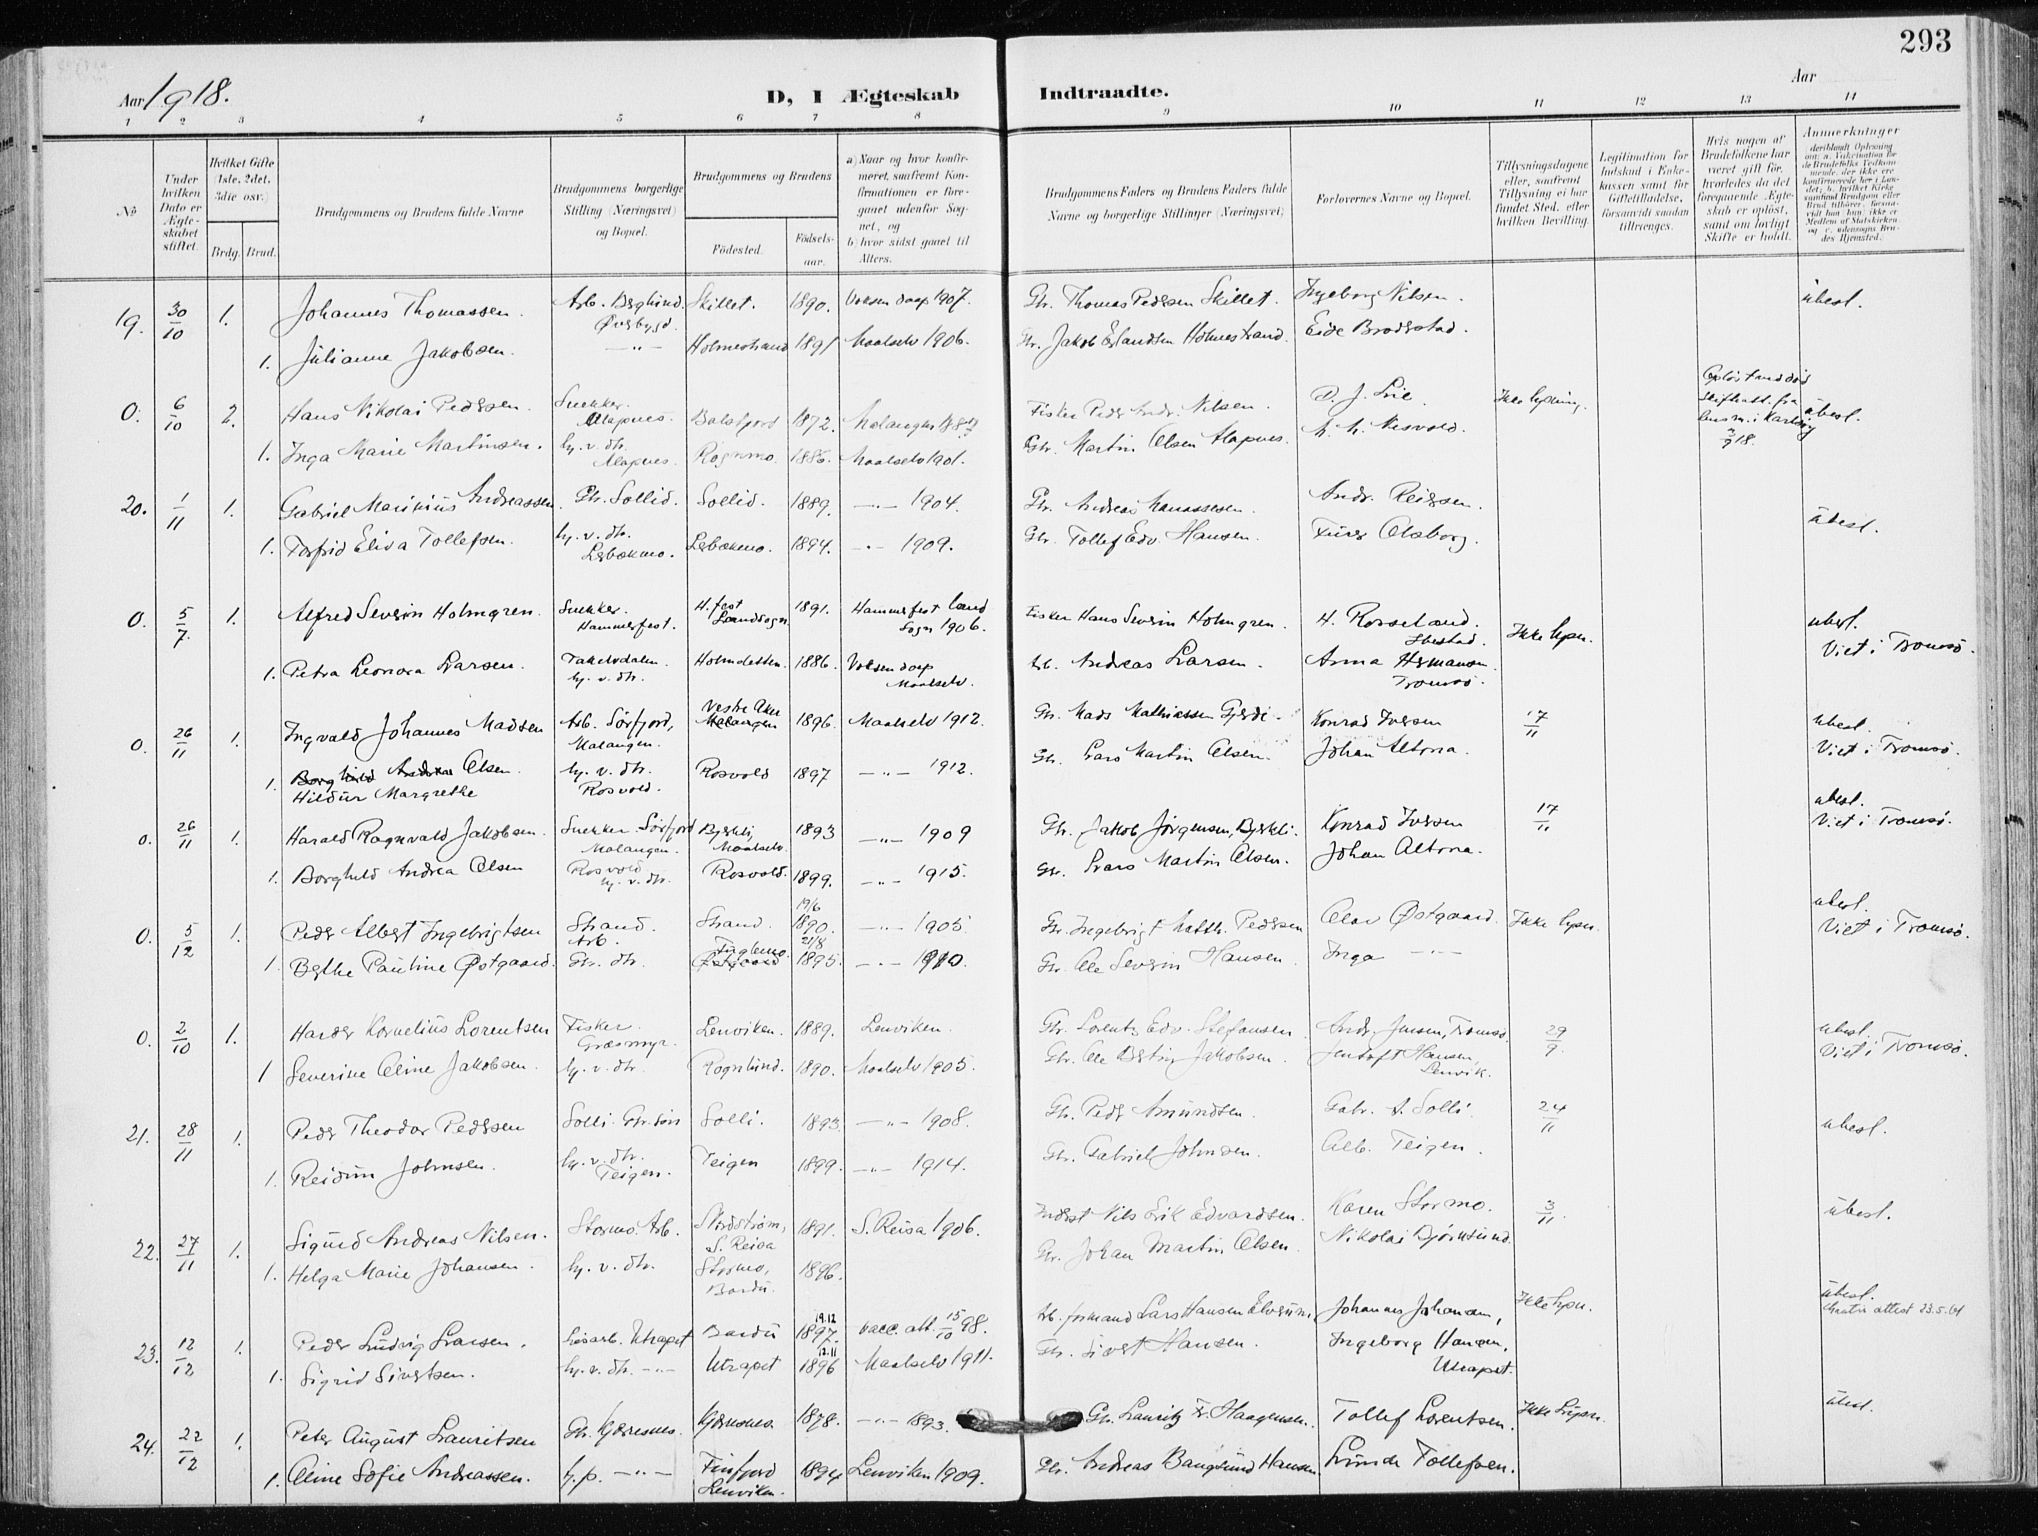 293
Aar 1918.
D, I Ægteskab Indtraadte.
Aar
1 2 3 4 5 6 7 8 9 10 11 12 13 14
No
Under hvilken Dato er Ægteskabet stiftet.
Hvilket Gifte (1ste, 2det, 3die osv.)
Brdg. Brud.
Brudgommens og Brudens fulde Navne
Brudgommens borgerlige Stilling (Næringsvei) og Bopæl.
Brudgommens og Brudens
Fødested. Fødselsaar.
a) Naar og hvor konfirmeret, saafremt Konfirmationen er foregaaet udenfor Sognet, og
b) hvor sidst gaaet til Alters.
Brudgommens Faders og Brudens Faders fulde Navne og borgerlige Stillinger (Næringsvei)
Forlovernes Navne og Bopæl.
Tillysningsdagene eller, saafremt Tillysning ei har fundet Sted, efter hvilken Bevilling
Legitimation for Indskud i Enkekassen samt for Giftetilladelse, forsaavidt saadan tiltrænges.
Hvis nogen af Brudefolkene har været gift før, hvorledes da det foregaaende Ægteskab er opløst, samt om lovligt Skifte er holdt.
Anmerkninger
19. 30/10 1. Johannes Thomassen. Arb. Berglund. Øverbygd. Skillet. 1890. Voksen døbt 1907. Gbr. Thomas Pedersen Skillet. Ingeborg Nilsen. ubesl.
1. Julianne Jakobsen. —"— Holmestrand 1891 Maalselv 1906. Gbr. Jakob Erlandsen Holmestrand. Eide Brodsstad.
0. 6/10 2. Hans Nikolai Pedersen. Snekker. Olapnes. Balsfjord 1872. Malangen Fisker Peder Andr. Nilsen. O. J. Lie. Ikke lysning. ubesl.
1. Inga Marie Martinsen. hj. v. dtr. Rognmo. 1886. Maalselv 1901. Gbr. Martin Olsen
20. 1/11 1. Gabriel Marinius Andreassen. Gbr. Sollid. Sollid. 1889. —"— 1904. Gbr. Andreas Manassesen. Andr. Reiersen. ubesl.
1. Torfrid Eliva Tollefsen. hj. v. dtr. Løbækmo. Løbækmo. 1894. —"— 1909. Gbr. Tollef Edv. Hansen. Olsborg.
0. 5/7 1. Alfred Severin Holmgren. Snekker. Hammerfest. H.fest Landsogn 1891. Hammerfest land sogn 1906. Fisker Hans Severin Holmgren. H. Rosseland. Ibestad. Ikke lysn. ubesl. Viet i Tromsø.
1. Petra Leonora Larsen. Takelvdalen. hj. v. dtr. 1886. Voksen døbt Maalselv. Arb. Andreas Larsen. Anna Hermansen Tromsø.
0. 26/11 1. Ingvald Johannes Madsen Arb. Sørfjord, Malangen. Vestre Aker Malangen 1896. Maalselv 1912. Gbr. Mads Mathiassen Gjerdi. Konrad Iversen 17/11 ubesl. Viet i Tromsø.
1. Borghild Andrea Olsen. Hildur Margrethe hj. v. dtr. Rosvold. Rosvold 1897 —"— 1912. Gbr. Lars Martin Olsen. Johan Altona.
0. 26/11 1. Harald Ragnvald Jakobsen. Snekker Sørfjord Malangen. Bjerkli, Maalselv 1893 —"— 1909 Gbr. Jakob Jørgensen, Bjerkli. Konrad Iversen 17/11 ubesl. Viet i Tromsø.
1. Borghild Andrea Olsen Rosvold hj. v. dtr. Rosvold. 1899. —"— 1915. Gbr. Lars Martin Olsen. Johan Altona.
0. 5/12 1. Peder Albert Ingebrigtsen Strand. Arb. Strand. 19/6 1890. —"— 1905 Gbr. Ingebrigt Matth. Pedersen Olav Østgaard. Ikke lysn. ubesl. Viet i Tromsø.
1. Berthe Pauline Østgaard. Gbr. dtr. Fuglemo. Østgaard 21/8 1895. —"— 1910. Gbr. Ole Severin Hansen. Inga —"—
0. 2/10 1. Harder Kornelius Lorentsen Fisker. Græsmyr. Lenviken. 1889. Lenviken. Gbr. Lorents Edv. Stefansen. Andr. Jensen, Tromsø. 29/9. ubesl. Viet i Tromsø.
1 Severine Oline Jakobsen. hj. v. dtr. Rognlund. 1890. Maalselv 1905. Gbr. Ole Bertin Jakobsen. Jentoft Hansen, Lenvik.
21. 28/11 1. Peder Theodor Pedersen Solli. Gbr. søn Solli. 1893. —"— 1908. Gbr. Peder Amundsen. Gabr. A. Solli. 24/11 ubesl.
1. Reidun Johnsen. hj. v. dtr. Teigen. Teigen 1899. —"— 1914. Gbr. Gabriel Johnsen. Alb. Teigen.
22. 27/11 1. Sigurd Andreas Nilsen. Stormo. Arb. S. Reisa 1891. S. Reisa 1906. Inderst Nils Erik Edvardsen. Karen Stormo. 3/11. ubesl.
1. Helga Marie Johansen. hj. v. dtr. Stormo, Bardu. 1896. Gbr. Johan Martin Olsen. Nikolai Bjørnsund.
23. 12/12 1. Peder Ludvig Larsen. Løsarb. Utrapet Bardu 19.12 1897. vacc. att. 15/10 98. Arb. formand Lars Hansen Elverum. Johannes Johansen, Ikke lysn. ubesl. attest 23.5.61
1. Sigrid Sivertsen. hj. v. dtr. —"— Utrapet 12.11 1896 Maalselv 1911. Gbr. Sivert Hansen. Ingeborg Hansen, Utrapet.
24. 22/12 1. Peter August Lauritsen Gbr. Kjærresnes. Kjærresnes. 1878. —"— 1893. Gbr. Lauritz Fr. Haagensen. Tollef Lorentsen. Ikke lysn. ubesl.
1. Oline Sofie Andreassen. h.p. —"— Finfjord Lenviken. 1894 Lenviken 1909. Gbr. Andreas Bangsund Hansen. Lunde Tollefsen.